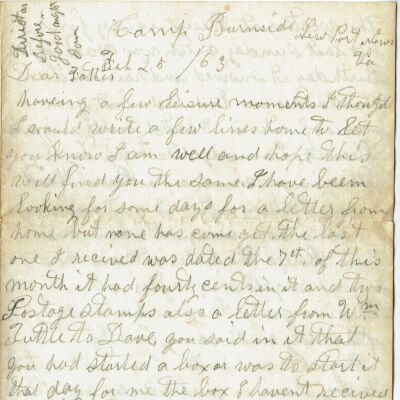 Direct as
before
Camp Burnside New Port News
Va
Feb 25 /63
Dear Father
haveing a few leisure moments I thought
I would write a few lines home to let
you know I am well and hope this
will find you the same. I have beem
looking for some days for a letter from
home but none has come yet. the last
one I recived was dated the 7th. of this
month it had fourty cents in it and two
Postage stamps also a letter from Wm
Tuttle to Dave, you said in it that
you had started a box or was to start it
that day for me the box I havent received